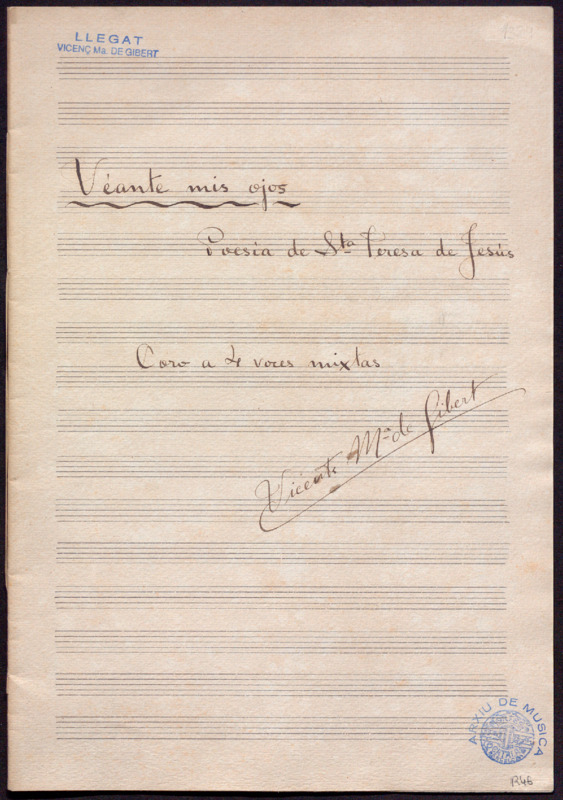 LLEGAT
VICENÇ Mª. DE GIBERT
1
Véante mis ojos
Poesia de Sta Teresa de Jesús
Coro a 4 voces mixtas
Vicente Mª de Gibert
ARXIU DE MUSICA
R46